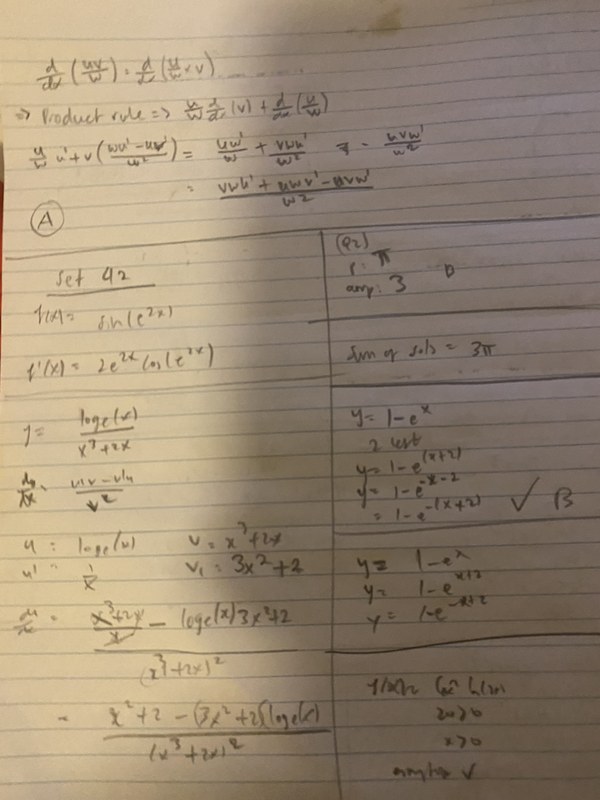 d/dx (uv/w) = d/dx (u/w × v)
⇒ Product rule ⇒ u/w d/dx (v) + d/dx (u/w)
= (vwu' + uwv' - uvw')/w²
(A)
Set 42
f(x) = sin(e^(2x))
f'(x) = 2e^(2x) cos(e^(2x))
y = loge(x)/(x³+2x)
dy/dx = (u'v - v'u)/v²
u = loge(x) v = x³+2x
u' = 1/x v' = 3x²+2
((x³+2x)/x - loge(x)3x²+2)/(x³+2x)²
= (x²+2 - (3x²+2)(loge(x))/(x³+2x)²
(Q2)
P: π
amp: 3 D
Sum of sols = 3π
y = 1-e^x
2 left
y = 1-e^(x+2)
y = 1-e^(-x-2)
= 1-e^(-(x+2)) ✓ B
y = 1-e^x
y = 1-e^(x+2)
y = 1-e^(-x+2)
x>0